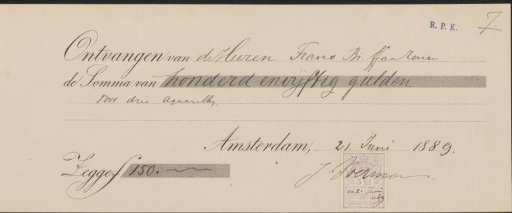 R.P.K. 7
Ontvangen van de Heeren Frans
de Somma van honderd envijftig gulden
voor drie aquarellen
Amsterdam, 21 Juni 1889.
Zegge f 150.-
J. Voerman